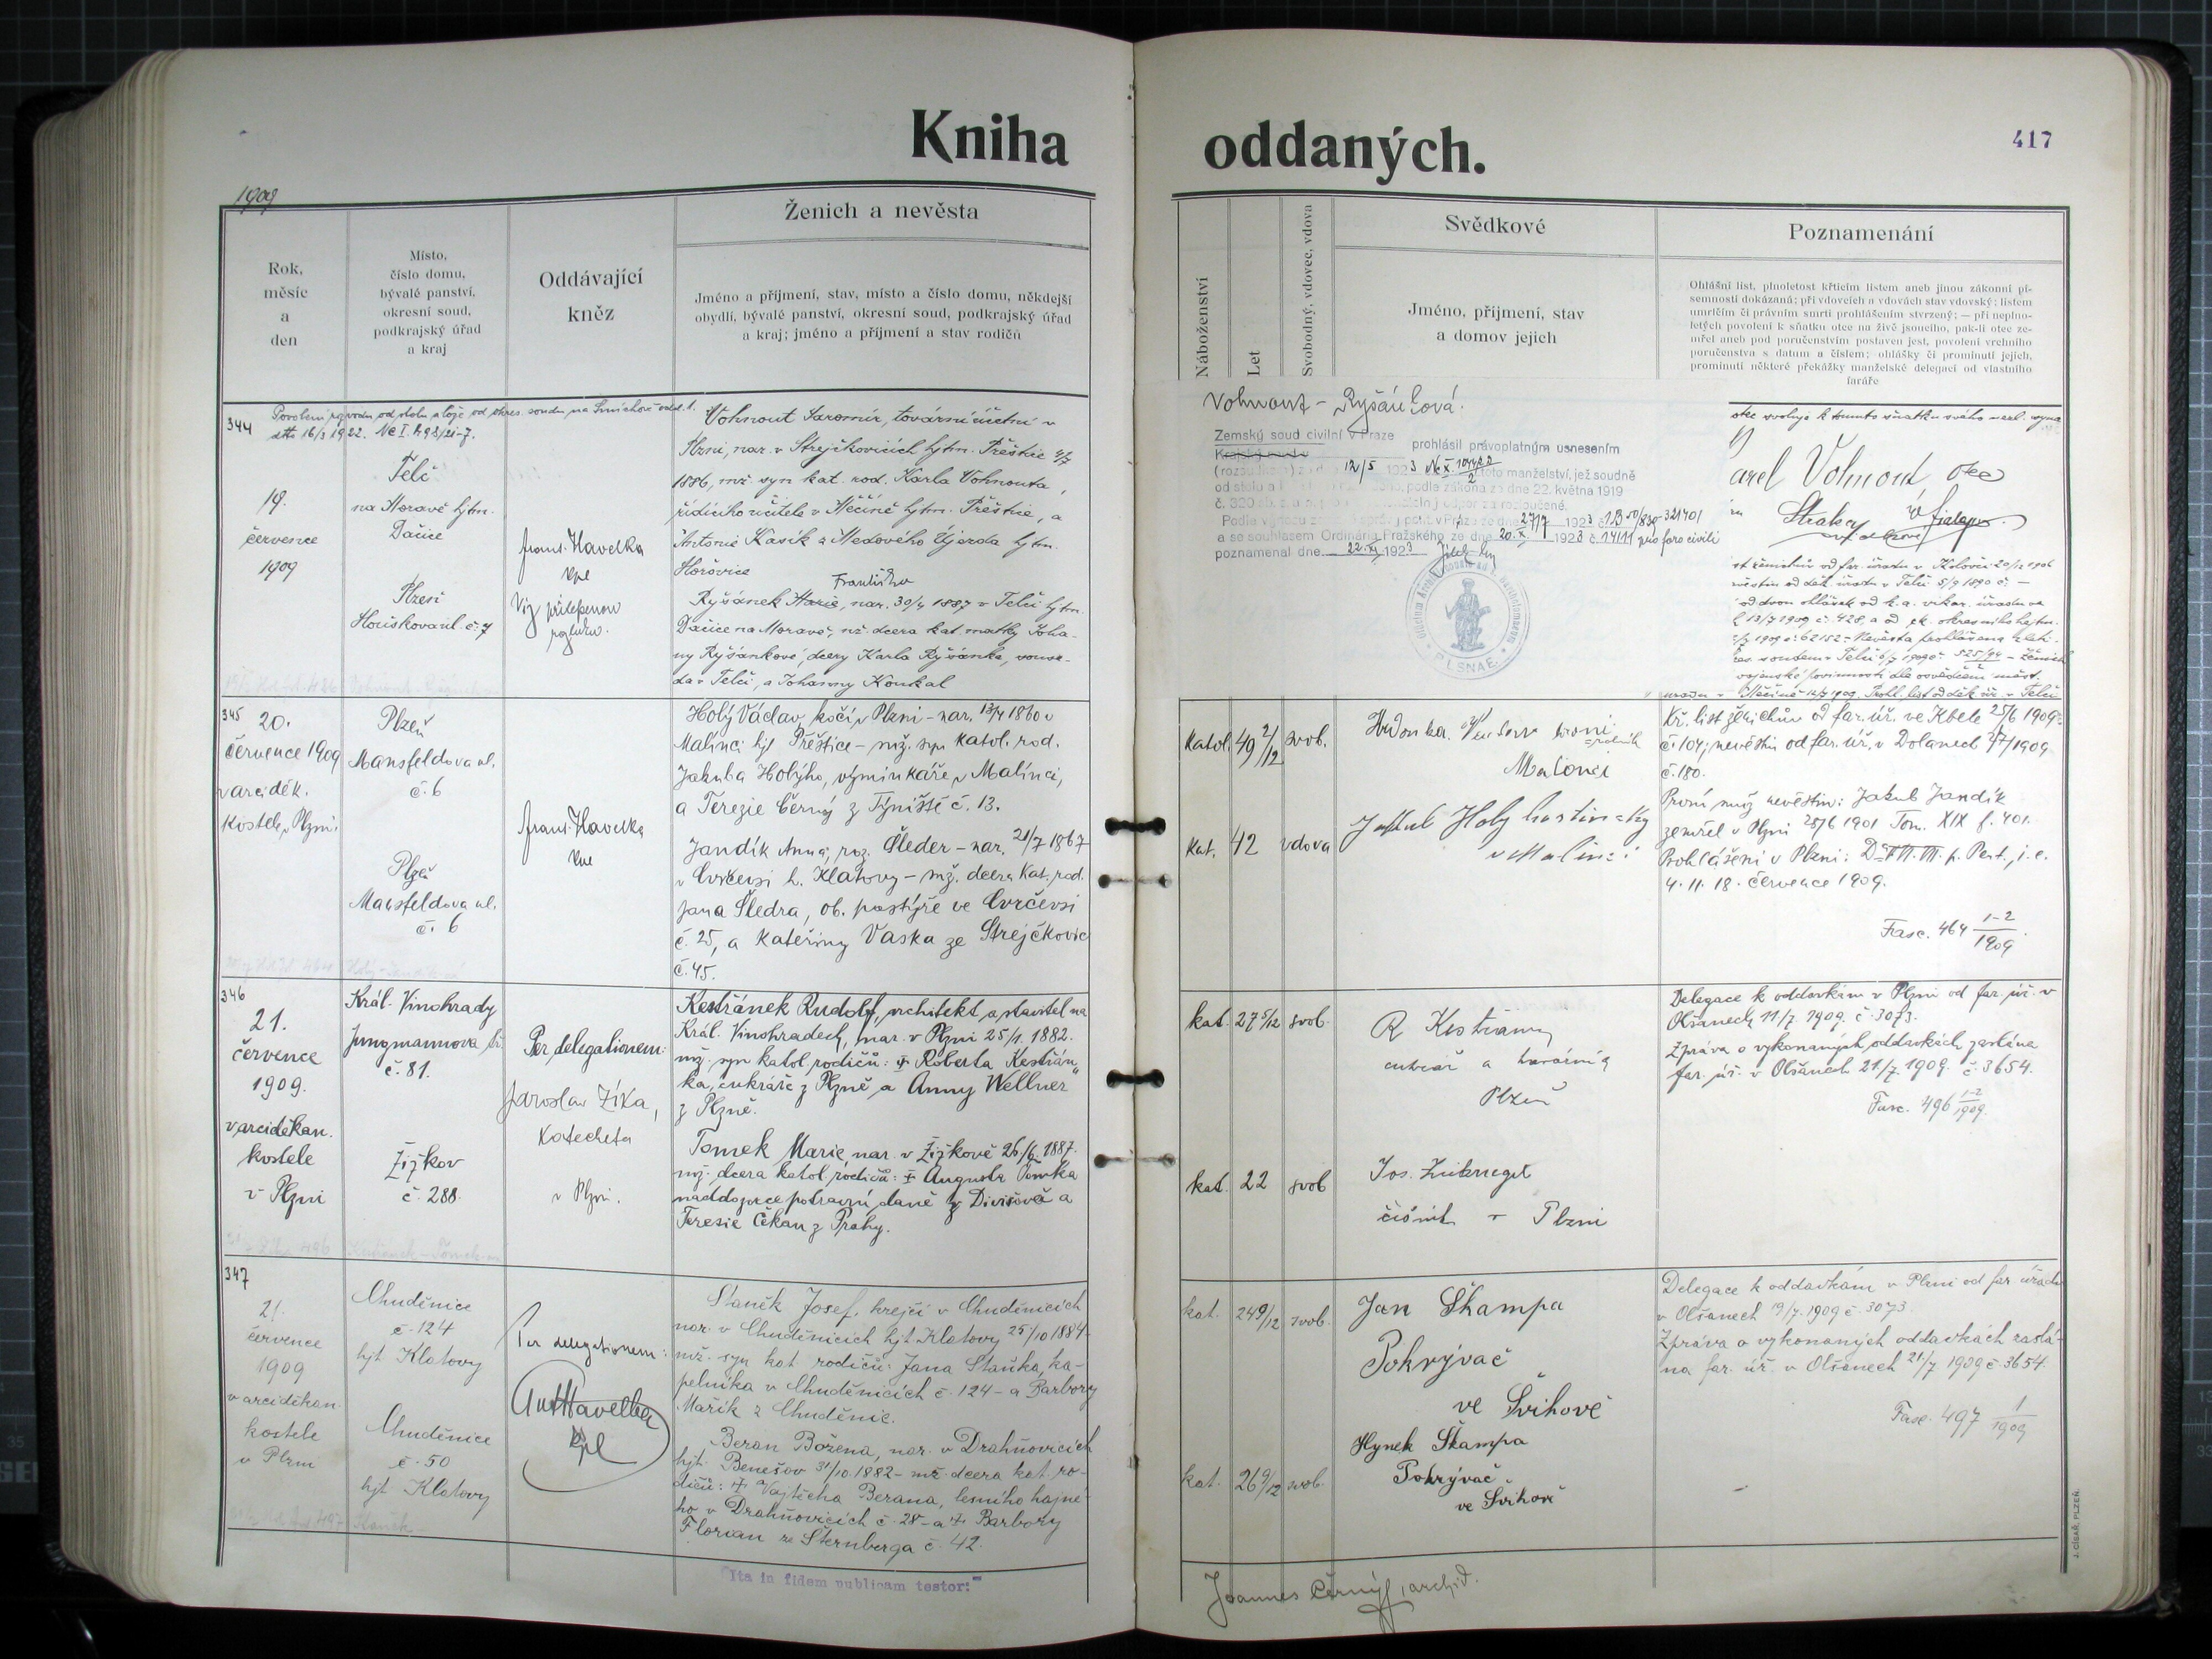 Kniha oddaných.
417
1909
Rok,
měsíc
a
den
Místo,
číslo domu,
bývalé panství,
okresní soud,
podkrajský úřad
a kraj
Oddávající
kněz
Ženich a nevěsta
Jméno a příjmení, stav, místo a číslo domu, někdejší
obydlí, bývalé panství, okresní soud, podkrajský úřad
a kraj; jméno a příjmení a stav rodičů
Náboženství
Let
Svobodný, vdovec, vdova
Svědkové
Jméno, příjmení, stav
a domov jejich
Poznamenání
Ohlášní list, plnoletost křticím listem aneb jinou zákonní pí-
semností dokázaná; při vdovcích a vdovách stav vdovský; listem
umrlčím či právním smrti prohlášením stvrzený; — při neplno-
letých povolení k sňatku otce na živě jsoucího, pak-li otec ze-
mřel aneb pod poručenstvím postaven jest, povolení vrchního
poručenstva s datum a číslem; ohlášky či prominutí jejich,
prominutí některé překážky manželské delegací od vlastního
faráře
344
Povolení rozvodu od stolu a lože od okres. soudu na Smíchově odd. 1.
dtto 16/3 1922. Nc I.
19.
července
1909
Telč
na Moravě hjtm.
Dačice
Plzeň
č. 7
Frant. Havelka
kpl
Viz přilepenou
Vohnout Jaromír, tovární účetní v
Plzni, nar. v Strejčkovicích hjtm. Přeštice 4/7
1886, mž. syn kat. rod. Karla Vohnouta,
řídícího učitele v Měčíně hjtm. Přeštice, a
Antonie Kasík z Medového Újezda hjtm.
Hořovice
Františka
Ryšánek Marie, nar. 30/4 1887 v Telči hjtm.
Dačice na Moravě, než. dcera kat. matky Joha-
ny Ryšánkové, dcery Karla Ryšánka,
v Telči, a Johanny Koukal
Vohnout - Ryšánková.
Zemský soud civilní v Praze prohlásil právoplatným usnesením
12/5 1923 toto manželství, jež soudně
od stolu a podle zákona ze dne 22. května 1919
č. 320 za rozloučené.
Podle v Praze ze dne 27/7 1923 č. 1B
a se souhlasem Ordinariátu Pražského ze dne 20.X. 1923 č. 14111 pro foro civili
poznamenal dne 22.XI. 1923
PLSNAE.
otec svoluje k tomuto sňatku svého
arel Vohnout, otec
345
20.
července 1909
v arciděk.
kostele v Plzni.
Plzeň
Mansfeldova ul.
č. 6
Plzeň
Mansfeldova ul.
č. 6
Frant. Havelka
kpl
Holý Václav, kočí v Plzni - nar. 13/4 1860 v
Malinci hjt Přeštice - mž. syn katol. rod.
Jakuba Holýho, výminkáře v Malinci,
a Terezie Černý z Týniště č. 13.
Jandík Anna, roz. Šleder - nar. 21/7 1867
v Cvrčevsi h. Klatovy - mž. dcera kat. rod.
Jana Šledra, ob. pastýře ve Cvrčevsi
č. 25, a Kateřiny Vaska ze Strejčkovic
č. 45.
katol. 49 2/12 svob.
kat. 42 vdova
Malonci
Jakub Holý hostinský
v Malinci
Kř. list ženichův od far. úř. ve Kbele 25/6 1909
č. 104; nevěstin od far. úř. v Dolanech 1909
č. 180.
První muž nevěstin: Jakub Jandík
zemřel v Plzni 25/6 1901 Tom. XIX f. 401.
Prohlášeni v Plzni: D. VI. VII. p. Pent., j. e.
4. 11. 18. července 1909.
Fasc. 464 1-2/1909
346
21.
července
1909.
v arciděkan.
kostele
v Plzni
Král. Vinohrady
Jungmannova tř.
č. 81.
Žižkov
č. 288.
Per delegationem:
Jaroslav Zíka,
katecheta
v Plzni.
Kestřánek Rudolf, architekt a stavitel na
Král. Vinohradech, nar. v Plzni 25/1. 1882.
mž. syn katol. rodičů: † Roberta Kestřán-
ka, cukráře z Plzně a Anny Wellner
z Plzně.
Tomek Marie, nar. v Žižkově 26/6. 1887.
mž. dcera katol. rodičů: † Augusta Tomka
naddozorce potravní daně z Divišova a
Teresie Čekan z Prahy.
kat. 27 5/12 svob.
kat. 22 svob
R Kestřánek
cukrář a kavárník
Plzeň
číšník v Plzni
Delegace k oddavkám v Plzni od far. úř. v
Olšanech 11/7. 1909. č. 3073.
Zpráva o vykonaných oddavkách zaslána
far. úř. v Olšanech 21/7. 1909. č. 3654.
Fasc. 496 1-2/1909.
347
21.
července
1909
v arciděkan.
kostele
v Plzni
Chuděnice
č. 124
hjt Klatovy
Chuděnice
č. 50
hjt Klatovy
Per delegationem:
Ant Havelka
kpl
Staněk Josef, krejčí v Chuděnicích
nar. v Chuděnicích hjt. Klatovy 25/10 1884
mž. syn kat. rodičů: Jana Staňka, ka-
pelníka v Chuděnicích č. 124 - a Barbory
Mařík z Chuděnic.
Beran Božena, nar. v Drahňovicích
hjt. Benešov 31/10. 1882 - mž. dcera kat. ro-
dičů: † Vojtěcha Berana, lesního hajné-
ho v Drahňovicích č. 28 - a † Barbory
Florian ze Šternberga č. 42.
kat. 24 9/12 svob.
kat. 26 9/12 svob.
Jan Škampa
Pokrývač
ve Švihově
Hynek Škampa
Pokrývač
ve Švihově
Delegace k oddavkám v Plzni od far. úřadu
v Olšanech 19/7. 1909 č. 3073.
Zpráva o vykonaných oddavkách zaslá-
na far. úř. v Olšanech 21/7 1909 č. 3654.
Fasc. 497 1/1909
"Ita in fidem publicam testor:"
Joannes Černý, archid.
J. CÍSAŘ, PLZEŇ.